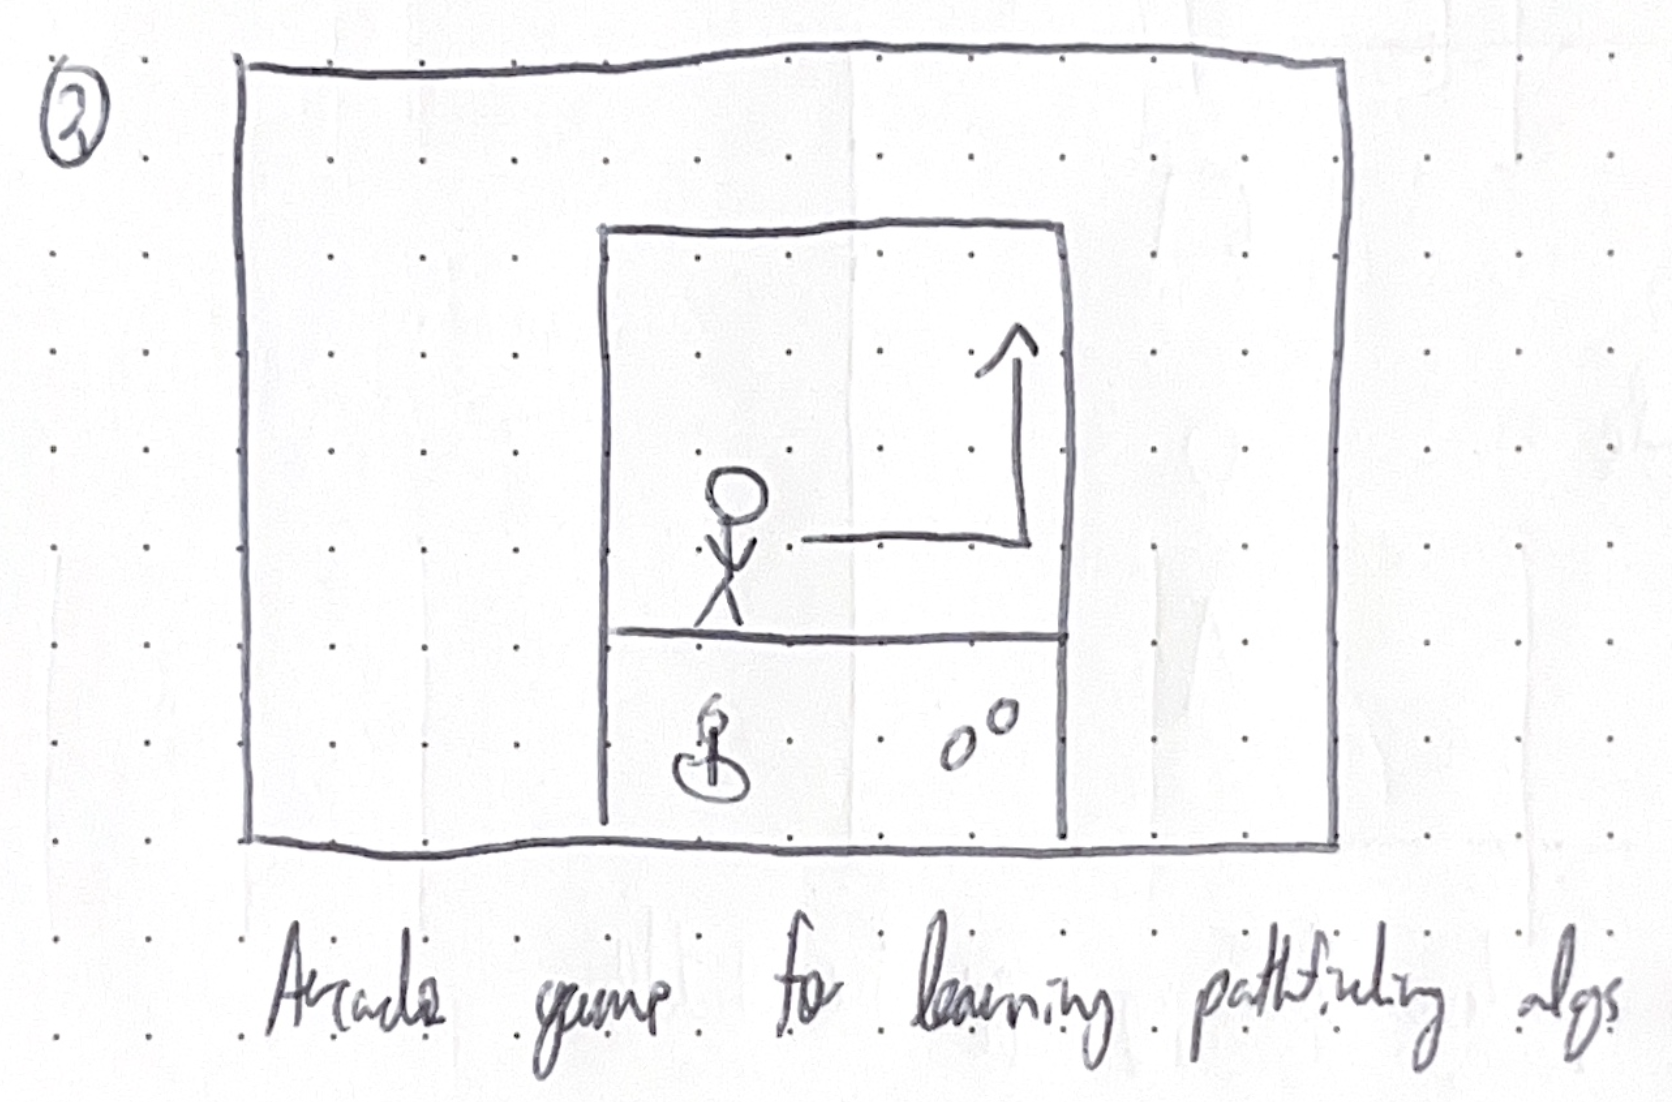 2
Arcade game for learning pathfinding algs